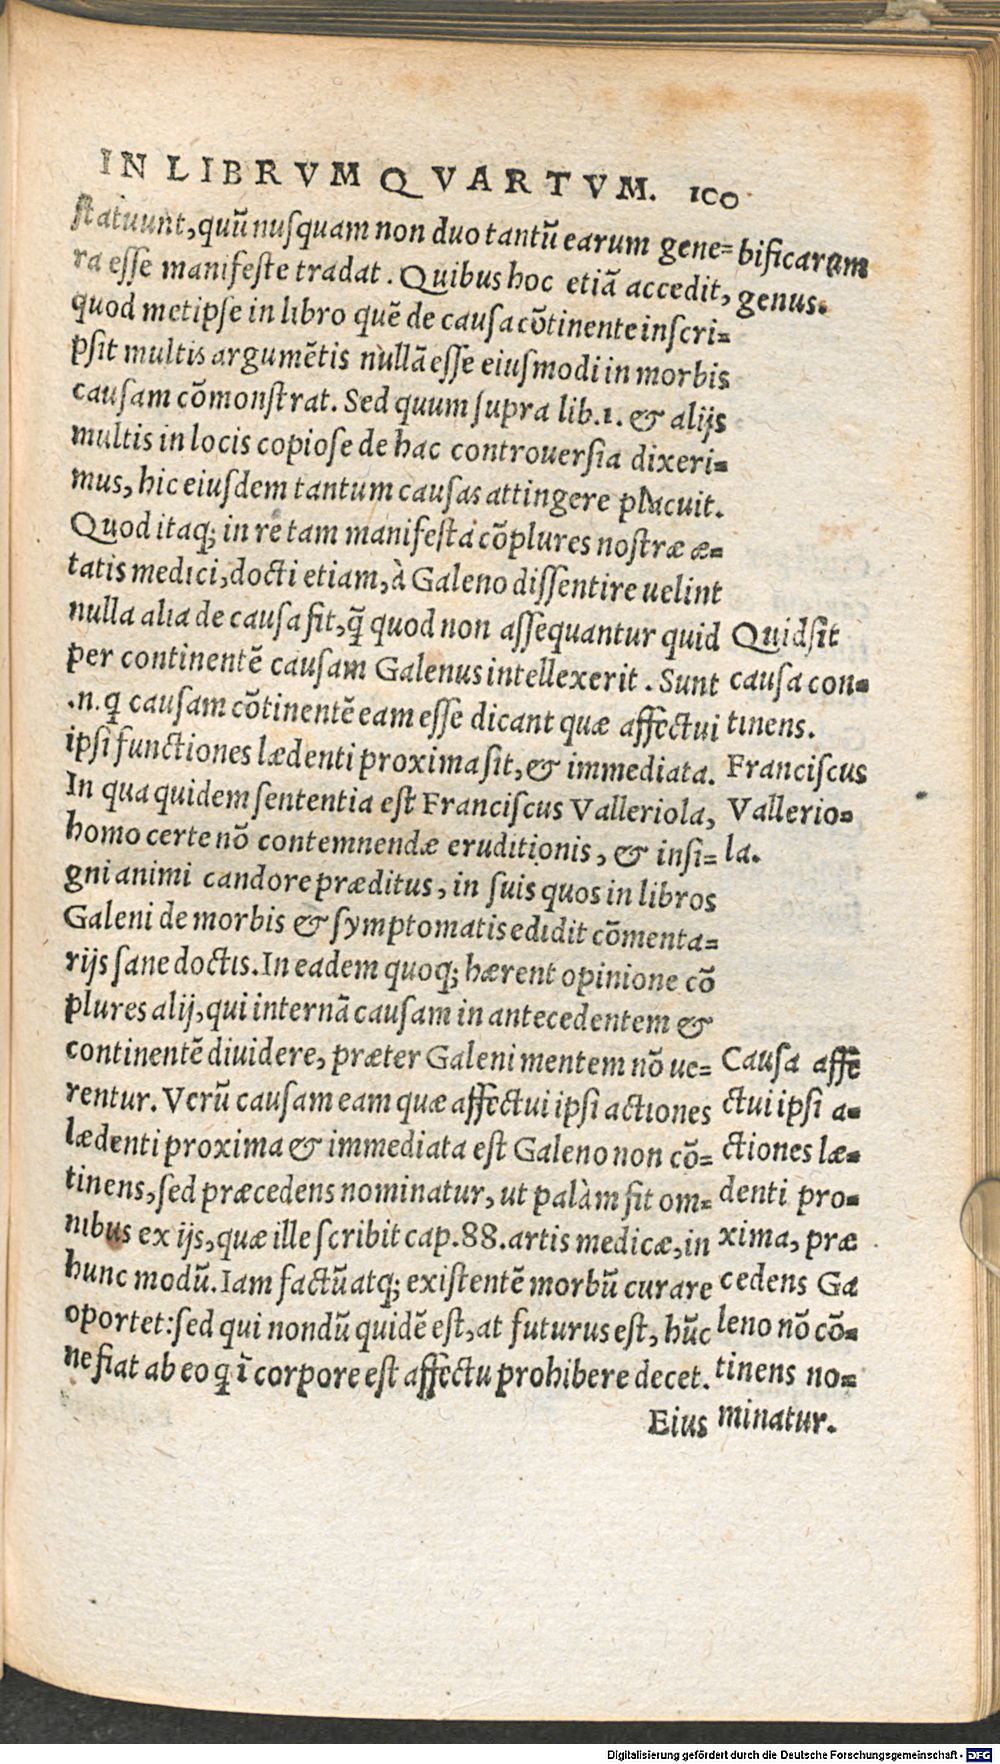 IN LIBRVM QVARTVM. 100
statuunt, quũ nusquam non duo tantũ earum gene=
ra esse manifeste tradat. Quibus hoc etiã accedit,
quod metipse in libro quẽ de causa cõtinente inscri=
psit multis argumẽtis nullã esse eiusmodi in morbis
causam cõmonstrat. Sed quum supra lib.1. & alijs
multis in locis copiose de hac controuersia dixeri=
mus, hic eiusdem tantum causas attingere placuit.
Quod itaq; in re tam manifesta cõplures nostræ æ=
tatis medici, docti etiam, à Galeno dissentire uelint
nulla alia de causa fit, q̃ quod non assequantur quid
per continentẽ causam Galenus intellexerit. Sunt
.n. q causam cõtinentẽ eam esse dicant quæ affectui
ipsi functiones lædenti proxima sit, & immediata.
In qua quidem sententia est Franciscus Valleriola,
homo certe nõ contemnendæ eruditionis, & insi=
gni animi candore præditus, in suis quos in libros
Galeni de morbis & symptomatis edidit cõmenta=
rijs sane doctis. In eadem quoq; hærent opinione cõ
plures alij, qui internã causam in antecedentem &
continentẽ diuidere, præter Galeni mentem nõ ue=
rentur. Verũ causam eam quæ affectui ipsi actiones
lædenti proxima & immediata est Galeno non cõ=
tinens, sed præcedens nominatur, ut palàm fit om=
nibus ex ijs, quæ ille scribit cap.88. artis medicæ, in
hunc modũ. Iam factũ atq; existentẽ morbũ curare
oportet: sed qui nondũ quidẽ est, at futurus est, hũc
ne fiat ab eo q ĩ corpore est affectu prohibere decet.
Eius
bificaram
genus.
Quid sit
causa con=
tinens.
Franciscus
Vallerio=
la.
Causa affe
ctui ipsi a=
ctiones læ=
denti pro=
xima, præ
cedens Ga
leno nõ cõ=
tinens no=
minatur.
Digitalisierung gefördert durch die Deutsche Forschungsgemeinschaft - DFG